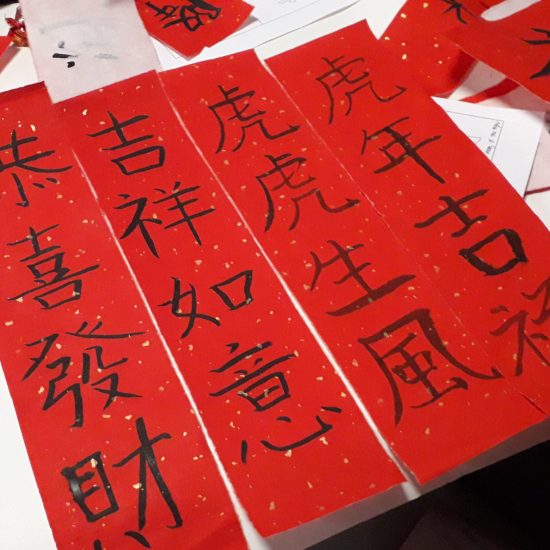 恭喜發財
吉祥如意
虎虎生風
虎年吉祥